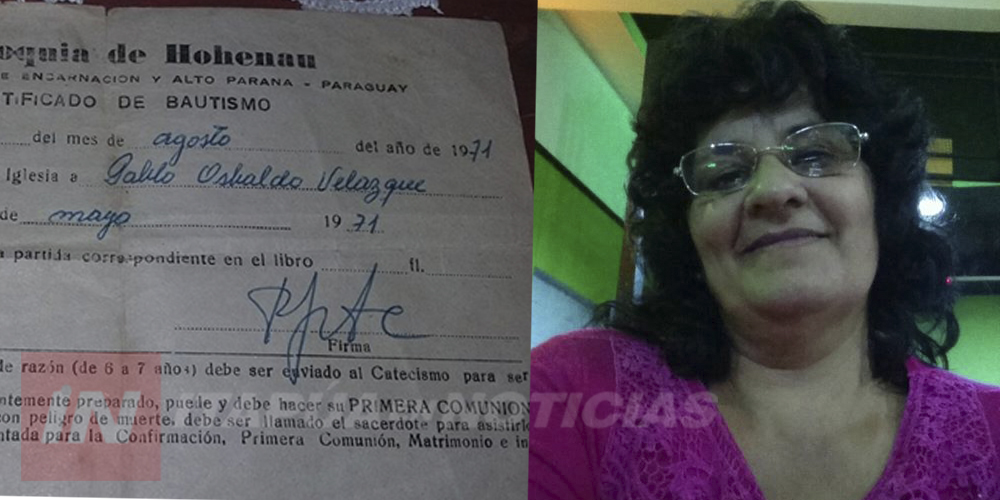 oquia de Hohenau
E ENCARNACION Y ALTO PARANA - PARAGUAY
TIFICADO DE BAUTISMO
del mes de agosto del año de 1971
Iglesia a Pablo Osvaldo Velazque
de mayo 1971
a partida correspondiente en el libro fl.
Firma
de razón (de 6 a 7 años) debe ser enviado al Catecismo para ser
ntemente preparado, puede y debe hacer su PRIMERA COMUNION
con peligro de muerte, debe ser llamado el sacerdote para asistirle
ntada para la Confirmación, Primera Comunión, Matrimonio e in
IN
NOTICIAS